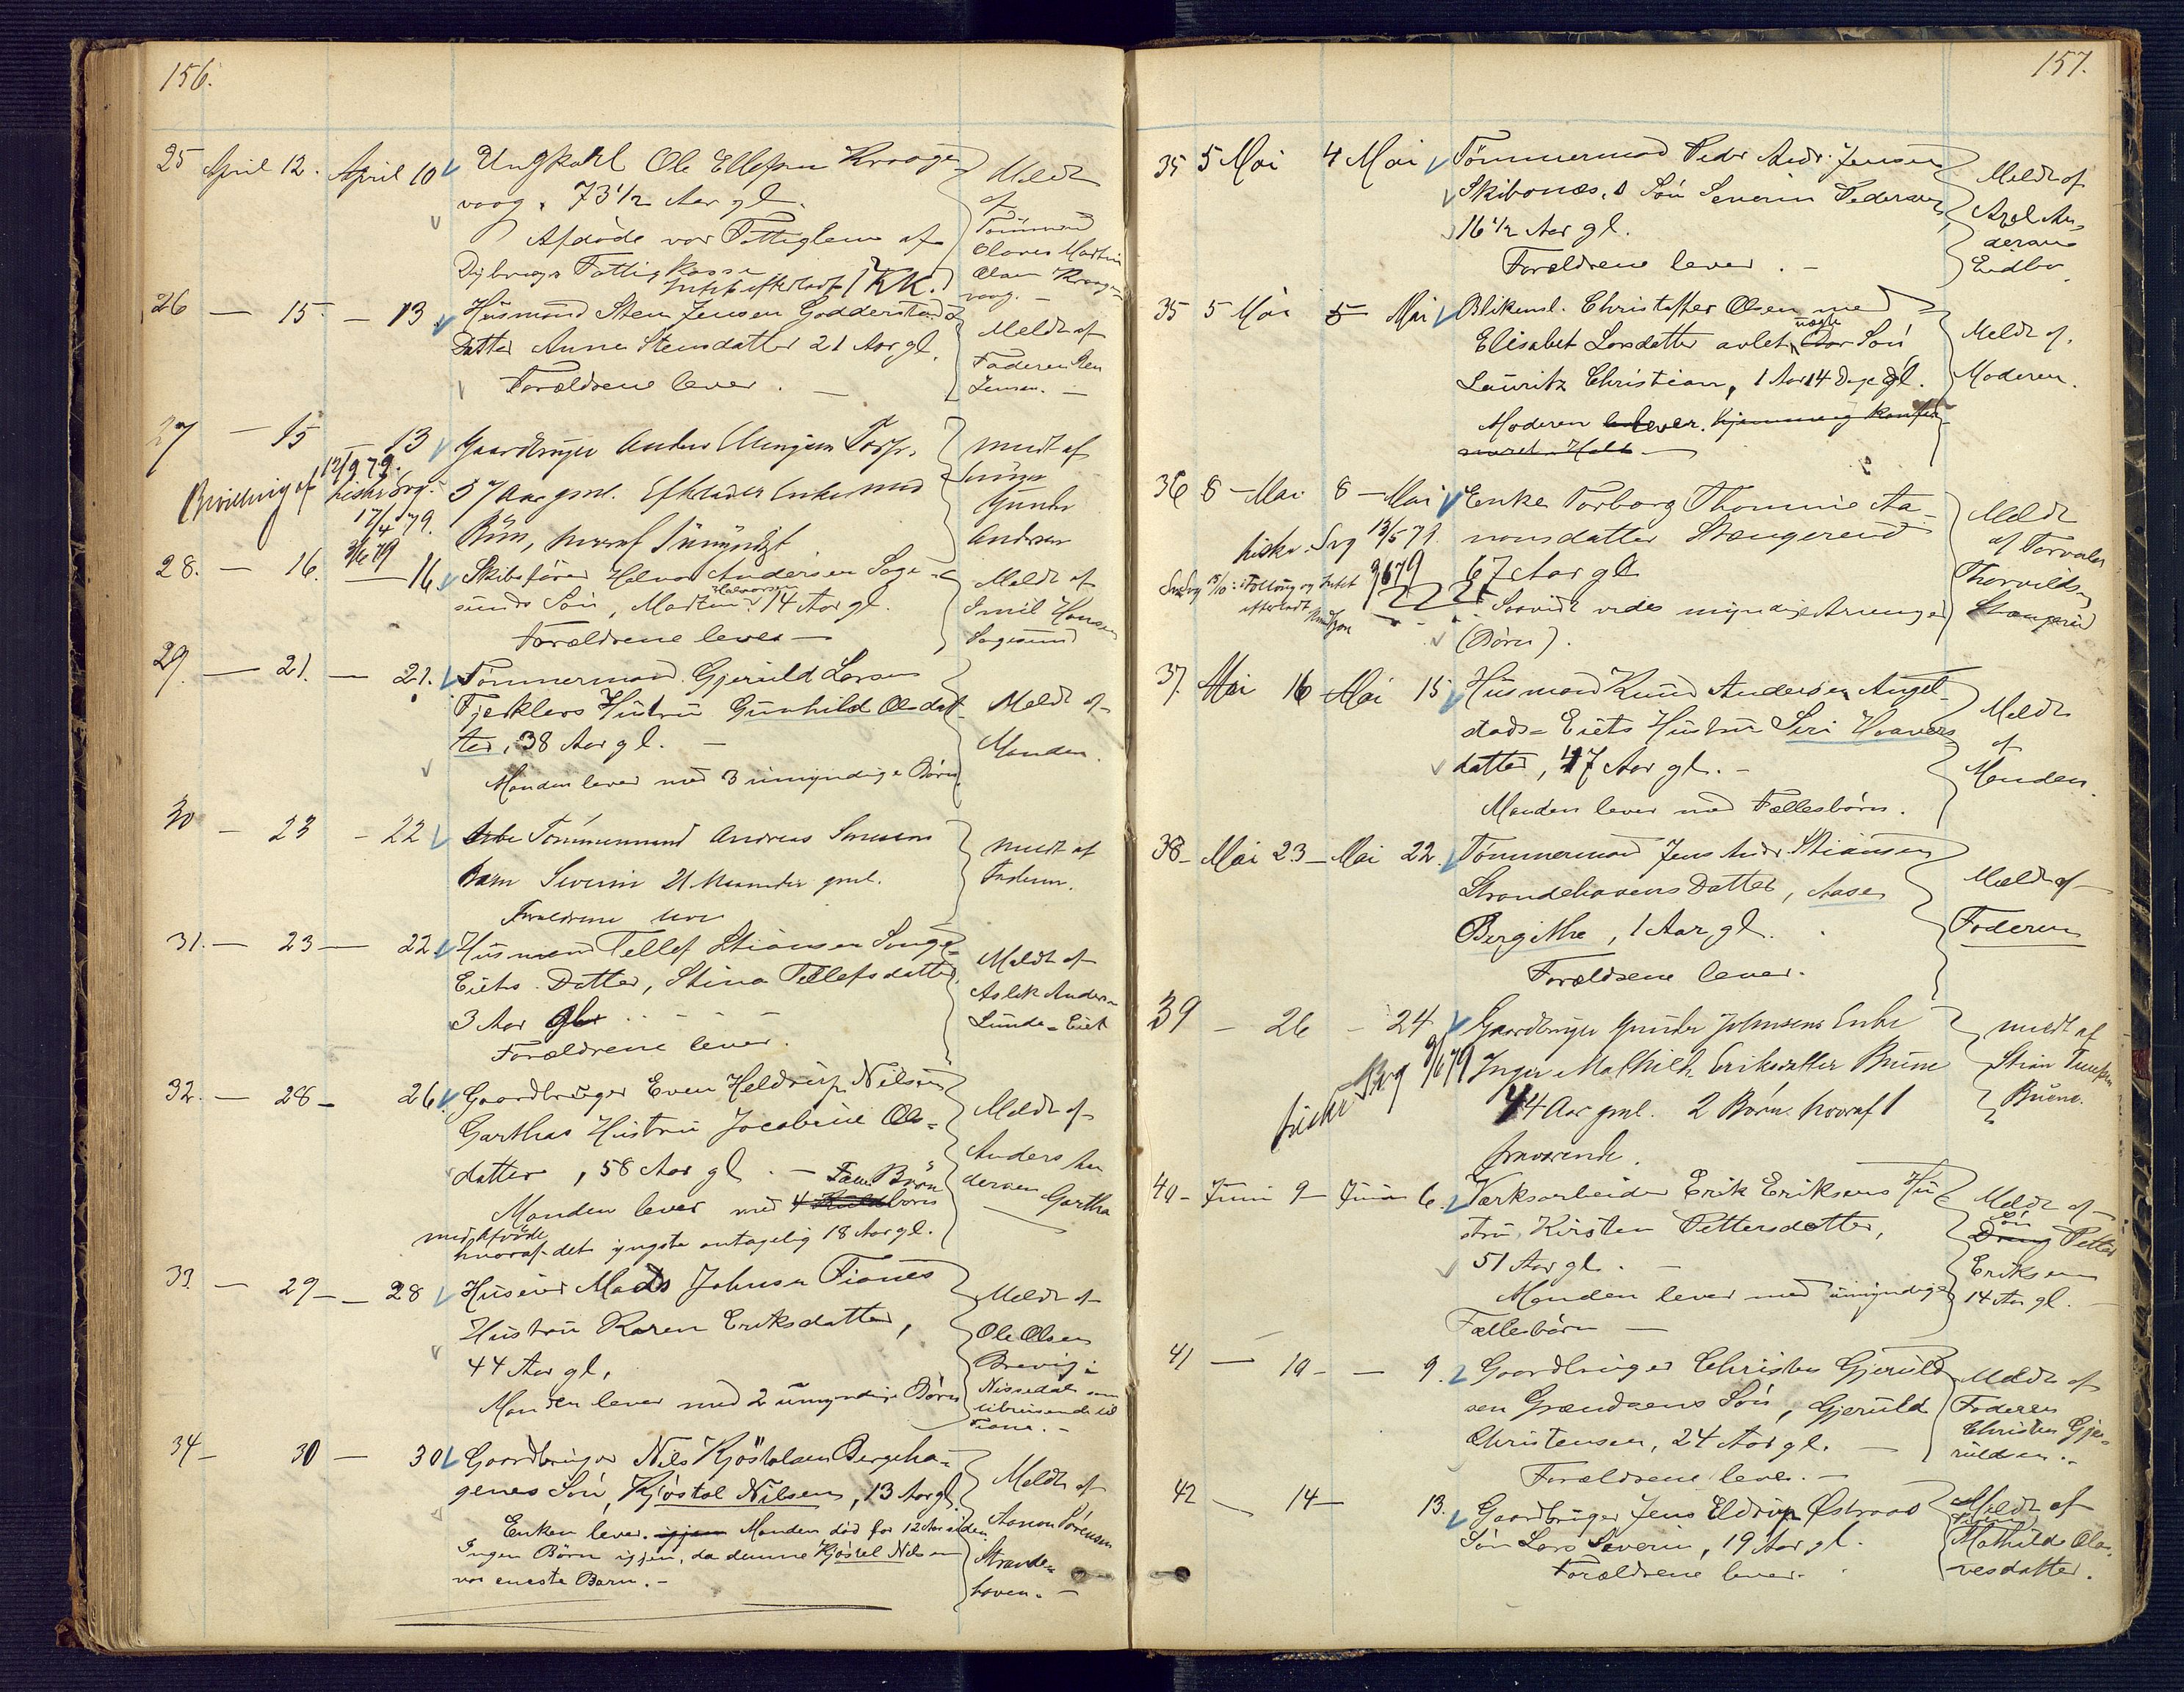 156.
25 April 12. April 10 Ungkarl Ole Ellefsen Krage-
vaag, 73 1/2 Aar gl.
Afdøde var Fattiglem af
Dybvaags Fattigkasse
Intet efterladt KK.
Meldt
af
Tømmermd
Olaves Martin
Olsen Krage-
vaag. —
26 — 15 — 13 Husmand Sten Jensen Goderstads
Datter Anne Stensdatter 21 Aar gl.
Forældrene lever. —
Meldt af
Faderen Sten
Jensen. —
27 — 15 — 13 Gaardbruger Anders Torp,
Bevilling af 12/9 79.
Skiftesorg. 57 Aar gml. Efterlader Enke med
17/4 79.
Børn, hvoraf 1 umyndigt
meldt af
Gunder
Andersen
28. — 16. — 16 Skibsfører Halvor Andersen Sage-
sunds Søn, Marten Halvorsen 14 Aar gl.
Forældrene lever —
Meldt af
Emil Hansen
Sagesund
29. — 21. — 21. Tømmermand Gjeruld Larsen
Fjerkleos Hustru Gunhild Olsdat-
ter, 38 Aar gl. —
Manden lever med 3 umyndige Børn.
Meldt af
Manden.
30 — 23 — 22 Tømmermand Andreas
Barn Severin 21 Maaneder gml.
Forældrene lever
meldt af
Faderen.
31. — 23 — 22 Husmand Tellef Stiansen Songe-
Eiets Datter, Stina Tellefsdatter,
3 Aar gl.
Forældrene lever.
Meldt af
Aslak Anders.
Lunde-Eiet
32. — 28 — 26. Gaardbruger Even Heldrup Nilsen
Garthas Hustru Jacobine Ols-
datter, 58 Aar gl. —
Manden lever med 4 Børn
med Afdøde
hvoraf det yngste antagelig 18 Aar gl.
Meldt af
Anders An
dersen Gartha
33. — 29 — 28 Huseier Mads Johnsen Fianes
Hustru Karen Eriksdatter,
44 Aar gl.
Manden lever med 2 umyndige Børn
Meldt af
Ole Olsen
Brevig i
Nissedal
Fiane. —
34 — 30 — 30 Gaardbruger Nils Kjøstolsen Bergeha-
genes Søn, Kjøstol Nilsen, 13 Aar gl.
Enken lever. Manden død for 12 Aar siden.
Ingen Børn igjen, da denne Kjøstel Nilsen
var eneste Barn. —
Meldt af
Aanon Sørensen
Strande-
haven. —
157.
35 5 Mai 4 Mai Tømmermand Peder Andr. Jensen
Skibonæs, Søn Severin Pedersen,
16 1/2 Aar gl.
Forældrene lever. —
Meldt af
Axel An-
dersen
Eidbo
35 5 Mai 5 Mai Blikensl. Christoffer Olsen med
Elisabet Larsdatter avlet uægte Søn
Lauritz Christian, 1 Aar 14 Dage gl.
Moderen lever. hjemme og konfir-
meret Holt —
Meldt af
Moderen.
36 8 — Mai 8 — Mai Enke Torborg Thomine Aa-
nonsdatter Stangerend
67 Aar gl
Saavidt vides myndige Arvinger
(Børn).
Meldt
af Torvald
Thorvilds.
Stangerei
37. Mai 16 Mai 15 Husmand Knud Andersen Angel-
stads-Eiets Hustru Siri Haavers-
datter, 47 Aar gl. —
Manden lever med Fællesbørn.
Meldt
af
Manden.
38 — Mai 23 — Mai 22. Tømmermand Jens Andr. Stiansen
Strandehavens Datter, Aase
Bergithe, 1 Aar gl.
Forældrene lever.
Meldt af
Faderen
39 — 26 — 24 Gaardbruger Gunder Johnsens Enke
Inger Mathilde Eriksdatter Buene
44 Aar gml. 2 Børn hvoraf 1
fraværende.
meldt af
Stian
Buene.
40 — Juni 9 — Juni 6. Værksarbeider Erik Eriksens Hu
stru, Kirsten Pettersdatter,
51 Aar gl. —
Manden lever med umyndige
Fællesbørn —
Meldt af
Søn
Dreng Petter
Eriksen
14 Aar gl. —
41 — 10 — 9. Gaardbruger Christen Gjeruld
sen Grændsens Søn, Gjeruld
Christensen, 24 Aar gl. —
Forældrene lever. —
Meldt af
Faderen
Christen Gje-
ruldsen. —
42 — 14 — 13. Gaardbruger Jens Eldrup Østraad
Søn Lars Severin, 19 Aar gl.
Forældrene lever.
Meldt af
Mathilde Ola-
vesdatter.